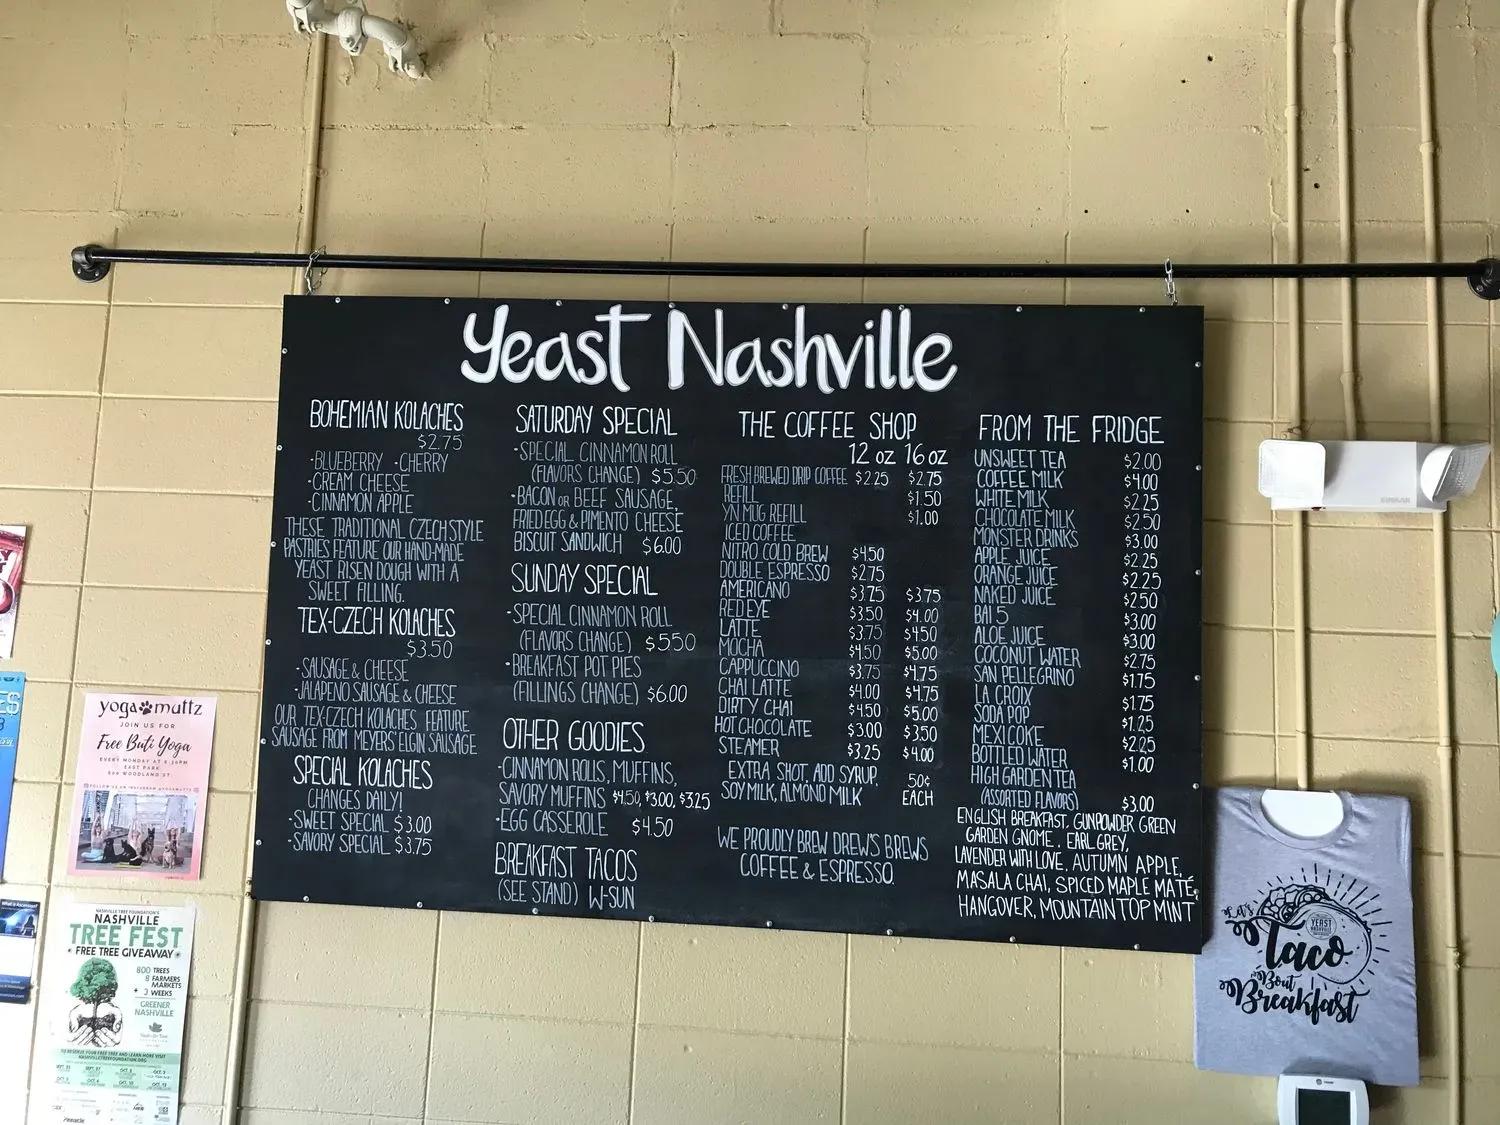 Yeast Nashville
BOHEMIAN KOLACHES
$2.75
·BLUEBERRY ·CHERRY
·CREAM CHEESE
·CINNAMON APPLE
THESE TRADITIONAL CZECH STYLE
PASTRIES FEATURE OUR HAND-MADE
YEAST RISEN DOUGH WITH A
SWEET FILLING.
TEX-CZECH KOLACHES
$3.50
·SAUSAGE & CHEESE
·JALAPENO SAUSAGE & CHEESE
OUR TEX-CZECH KOLACHES FEATURE
SAUSAGE FROM MEYERS' ELGIN SAUSAGE
SPECIAL KOLACHES
CHANGES DAILY!
·SWEET SPECIAL $3.00
·SAVORY SPECIAL $3.75
SATURDAY SPECIAL
·SPECIAL CINNAMON ROLL
(FLAVORS CHANGE) $5.50
·BACON OR BEEF SAUSAGE,
FRIED EGG & PIMENTO CHEESE
BISCUIT SANDWICH $6.00
SUNDAY SPECIAL
·SPECIAL CINNAMON ROLL
(FLAVORS CHANGE) $5.50
·BREAKFAST POT PIES
(FILLINGS CHANGE) $6.00
OTHER GOODIES
·CINNAMON ROLLS, MUFFINS,
SAVORY MUFFINS $4.50, $3.00, $3.25
·EGG CASSEROLE $4.50
BREAKFAST TACOS
(SEE STAND) W-SUN
THE COFFEE SHOP
12 oz 16 oz
FRESH BREWED DRIP COFFEE $2.25 $2.75
REFILL $1.50
YN MUG REFILL $1.00
ICED COFFEE
NITRO COLD BREW $4.50
DOUBLE ESPRESSO $2.75
AMERICANO $3.25 $3.75
RED EYE $3.50 $4.00
LATTE $3.75 $4.50
MOCHA $4.50 $5.00
CAPPUCCINO $3.75 $4.75
CHAI LATTE $4.00 $4.75
DIRTY CHAI $4.50 $5.00
HOT CHOCOLATE $3.00 $3.50
STEAMER $3.25 $4.00
EXTRA SHOT, ADD SYRUP, 50¢
SOY MILK, ALMOND MILK EACH
WE PROUDLY BREW DREW'S BREWS
COFFEE & ESPRESSO.
FROM THE FRIDGE
UNSWEET TEA $2.00
COFFEE MILK $4.00
WHITE MILK $2.25
CHOCOLATE MILK $2.50
MONSTER DRINKS $3.00
APPLE JUICE $2.25
ORANGE JUICE $2.25
NAKED JUICE $2.50
BAI 5 $3.00
ALOE JUICE $3.00
COCONUT WATER $2.75
SAN PELLEGRINO $1.75
LA CROIX $1.75
SODA POP $1.25
MEXI COKE $2.25
BOTTLED WATER $1.00
HIGH GARDEN TEA
(ASSORTED FLAVORS) $3.00
ENGLISH BREAKFAST, GUNPOWDER GREEN
GARDEN GNOME, EARL GREY,
LAVENDER WITH LOVE, AUTUMN APPLE,
MASALA CHAI, SPICED MAPLE MATÉ,
HANGOVER, MOUNTAIN TOP MINT
yoga muttz
JOIN US FOR
Free Buti Yoga
EVERY MONDAY AT 6:30PM
EAST PARK
NASHVILLE TREE FOUNDATION'S
NASHVILLE
TREE FEST
FREE TREE GIVEAWAY
800 TREES
8 FARMERS
MARKETS
+ 3 WEEKS
GREENER
NASHVILLE
Let's
Taco
'Bout
Breakfast
YEAST
NASHVILLE